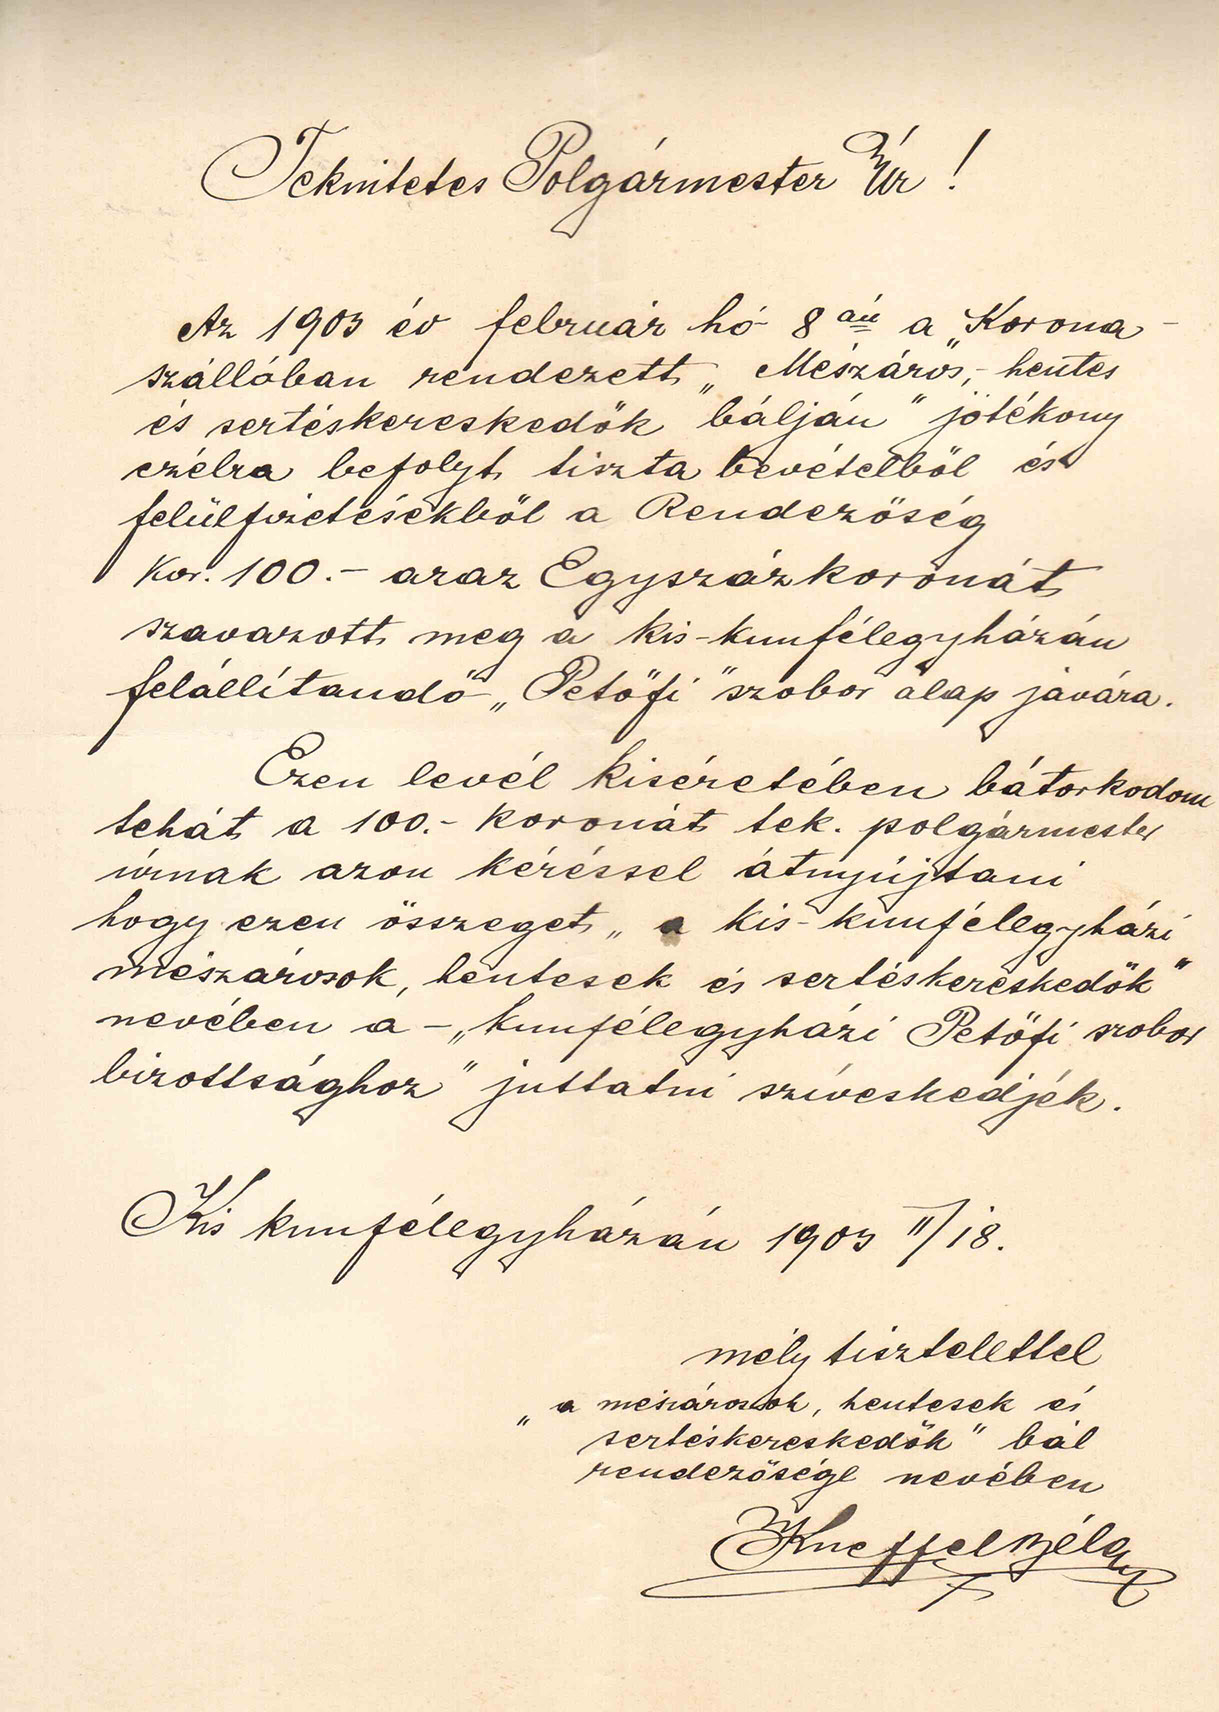 Tekintetes Polgármester Úr!
Az 1903 év február hó 8 án a „Korona-
szállóban rendezett „Mészáros,- hentes
és sertéskereskedők "bálján" jótékony
czélra befolyt tiszta bevételből és
felülfizetésekből a Rendezőség
Kor. 100.- azaz Egyszázkoronát
szavazott meg a kis-kunfélegyházán
felállítandó „Petőfi" szobor alap javára.
Ezen levél kiséretében bátorkodom
tehát a 100.- koronát tek. polgármester
úrnak azon kéréssel átnyújtani
hogy ezen összeget „a kis-kunfélegyházi
mészárosok, hentesek és sertéskereskedők"
nevében a - „kunfélegyházi Petőfi szobor
bizottsághoz" juttatni szíveskedjék.
Kis kunfélegyházán 1903 II/18.
mély tisztelettel
„a mészárosok, hentesek és
sertéskereskedők" bál
rendezősége nevében
Kneffel Béla